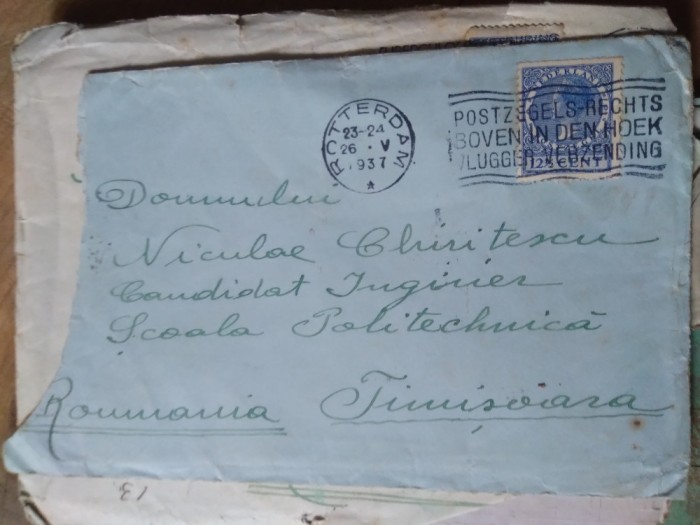 ROTTERDAM
23-24
26 · V
1937
*
NEDERLAND
12½ CENT
POSTZEGELS-RECHTS
BOVEN IN DEN HOEK
VLUGGER VERZENDING
Domnului
Niculae Chiritescu
Candidat Inginer
Școala Politechnică
Roumania Timișoara
13